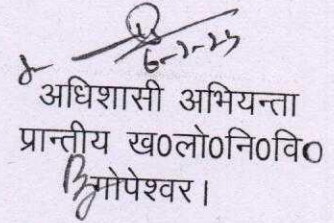 6-2-23
अधिशासी अभियन्ता
प्रान्तीय ख0लो0नि0वि0
गोपेश्वर।